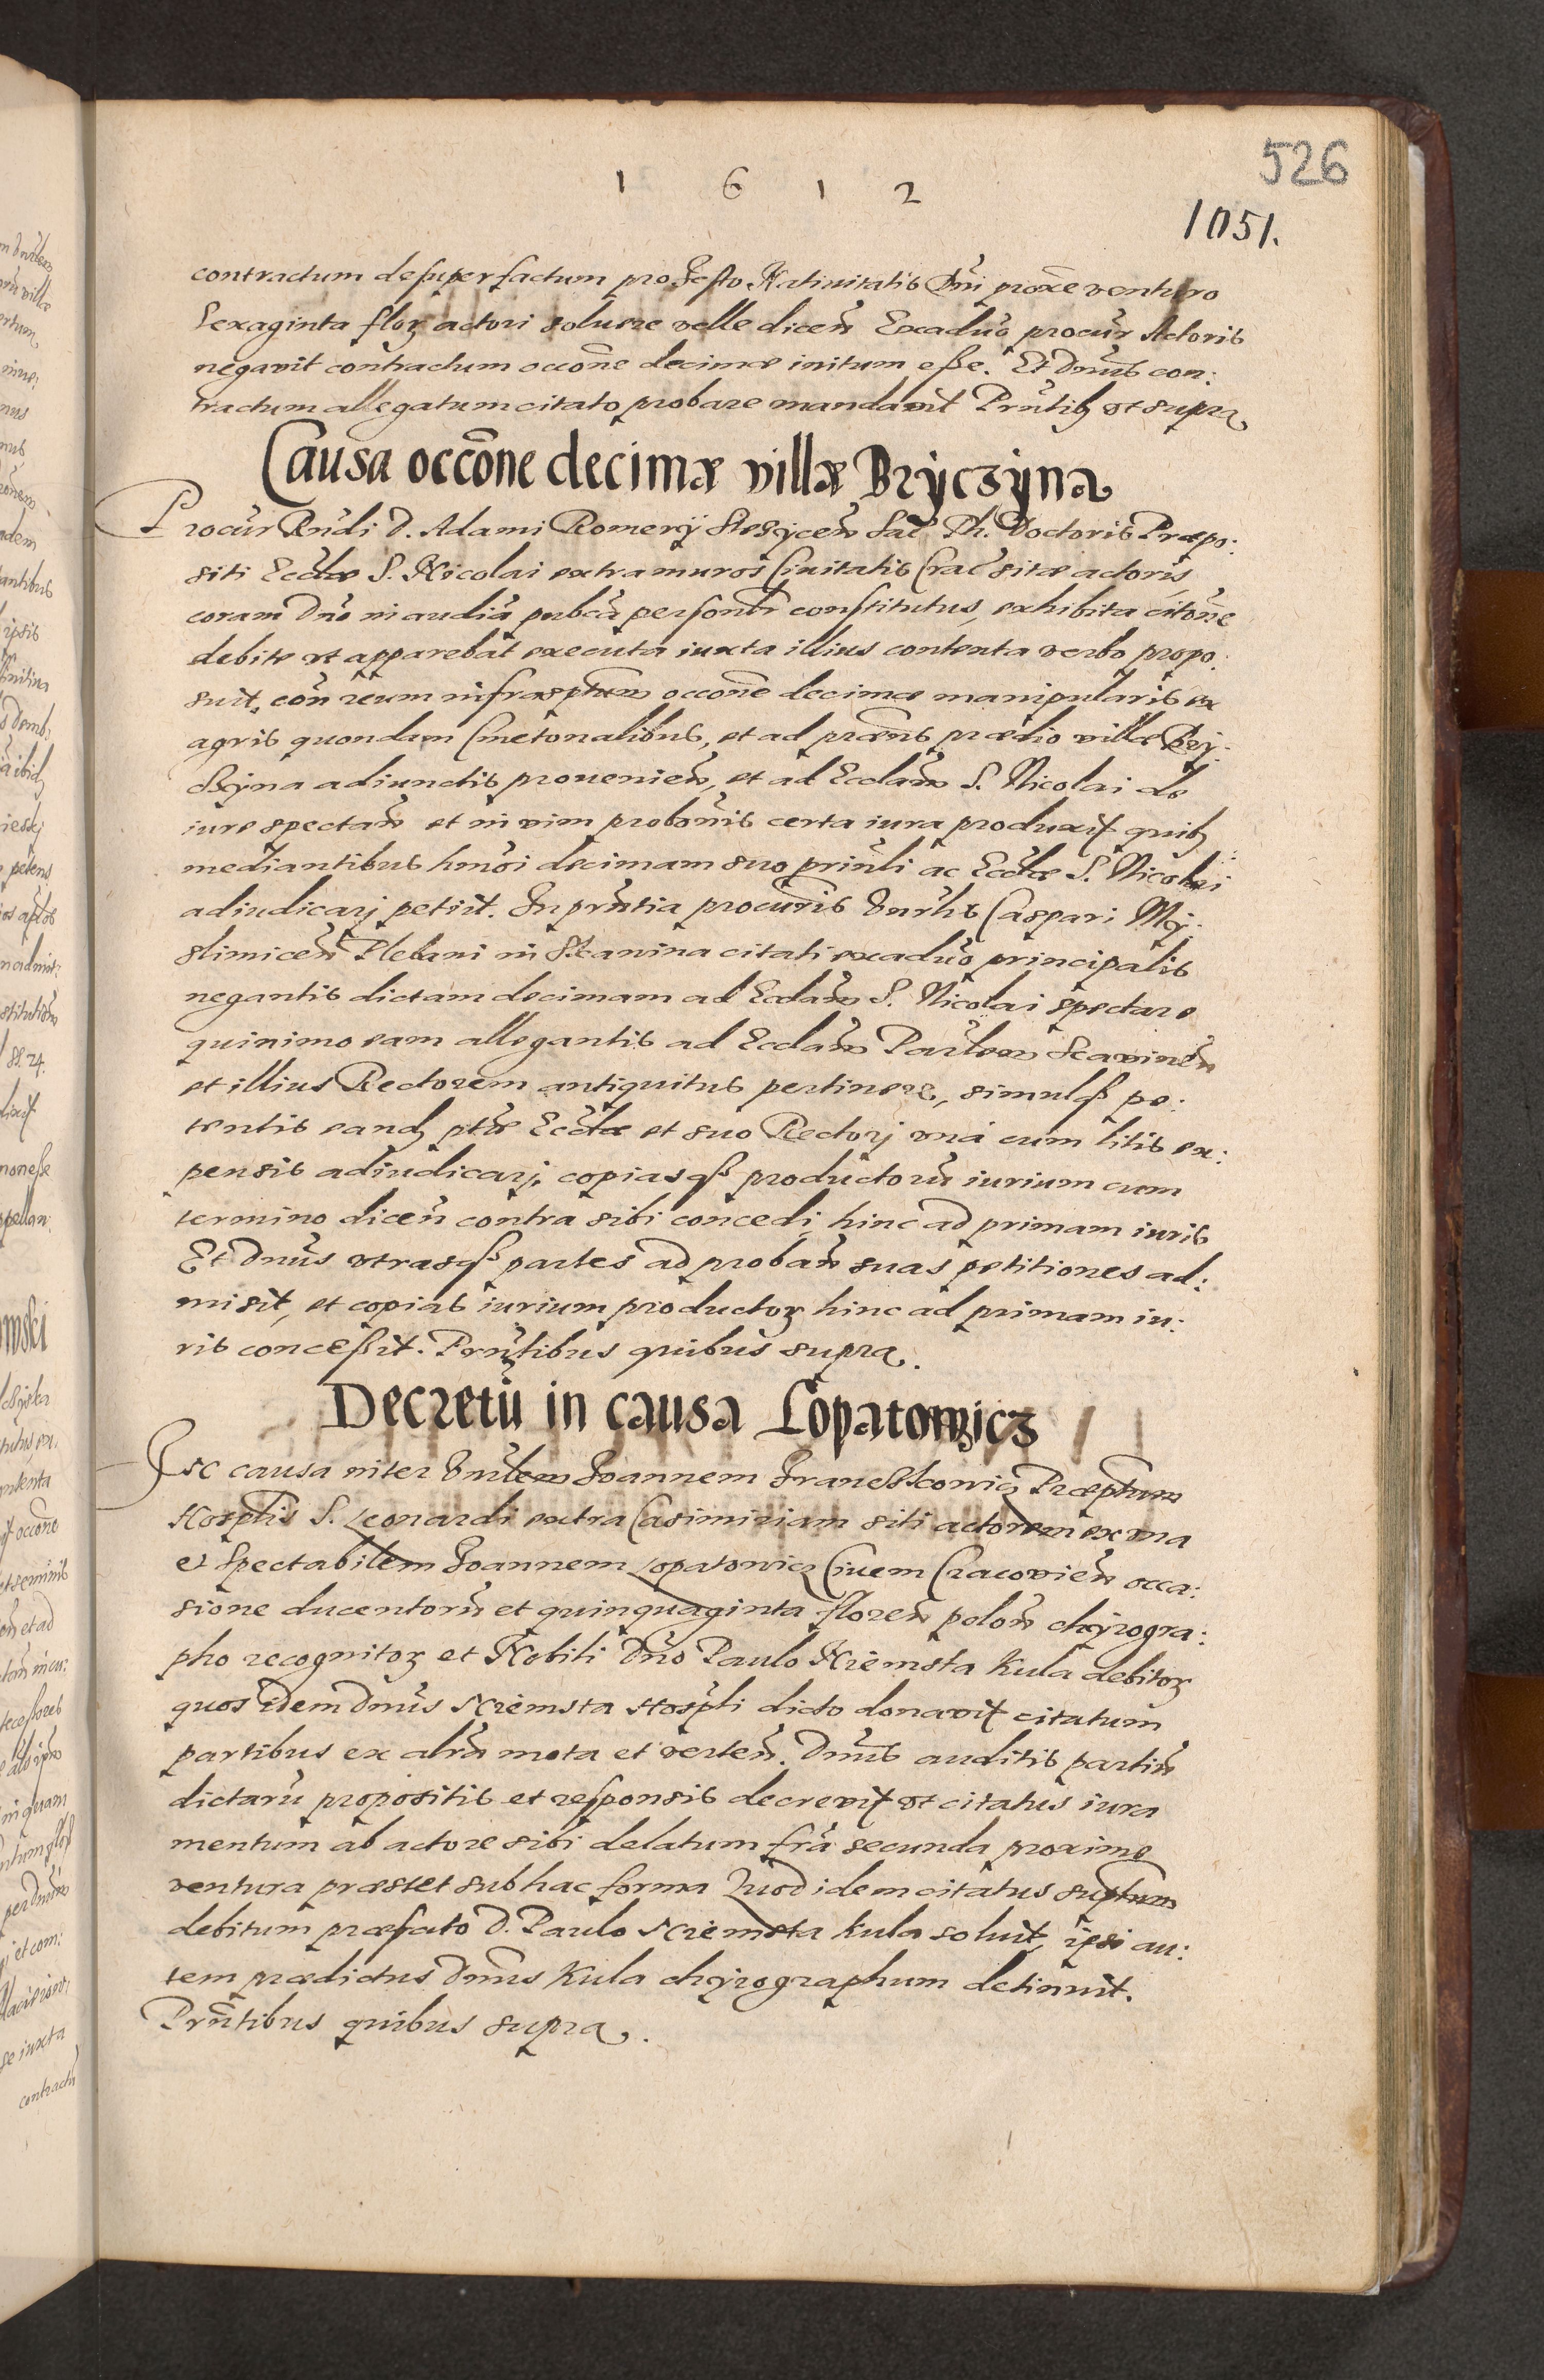 526
1 6 1 2
1051.
contractum desuper factum pro Festo Natiuitatis Dni proxe venturo
sexaginta florz actori soluere velle dicen̄ Ex aduo procur Actoris
negavit contractum occone decimæ initum esse. Et Dnus con:
tractum allegatum citato probare mandavit Prntibz ut supra
Causa occōne decimæ villæ Bryczyna
Procur Rndi D. Adami Romerij Stezycen Sac Th. Doctoris Præpo:
siti Ecclæ S. Nicolai extra muros Ciuitatis Crac sitæ actoris,
coram Dno in audiā pubcā personlr constitutus, exhibita citone
debite ut apparebat executa iuxta illius contenta verbo propo:
suit, con reum infrascptum occone decimæ manipularis ex
agris quondam Cmetonalibus, et ad præns prædio villæ Bry:
czyna adiunctis prouenien, et ad Ecclam S. Nicolai de
iure spectan et in vim probonis certa iura produxit quibz
mediantibus hmoi decimam suo prinli ac Ecclæ S. Nicolai
adiudicarj petiit. In prntia procuris Vnrlis Caspari My:
slimicen Plebani in Skawina citati ex aduo principalis
negantis dictam decimam ad Ecclam S. Nicolai spectare
quinimo eam allegantis ad Ecclam Parlem Scavinen
et illius Rectorem antiquitus pertinere, simulqz pe:
tentis eandz ptæ Ecclæ et suo Rectorj unà cum litis ex:
pensis adiudicarj, copiasqz productorū iurium cum
termino dicen contra sibi concedi hinc ad primam iuris
Et Dnus utrasqz partes ad proban suas petitiones ad:
misit, et copias iurium productorz hinc ad primam iu:
ris concessit. Prntibus quibus supra.
Decretū in causa Lopatowicz
In causa inter Vnrlem Joannem Franckowicz Præptum
Hosptlis S. Leonardi extra Casimiriam siti actorem ex una
et Spectabilem Joannem Lopatowicz Ciuem Cracovien occa:
sione ducentorū et quinquaginta floren polon chyrogra:
pho recognitorz et Nobili Dno Paulo Niemsta Kula debitorz
quos idem Dnus Niemsta Hosptli dicto donavit citatum
partibus ex altra mota et verten. Dnus auditis partiū
dictarū propositis et responsis decrevit ut citatus iura
mentum ab actore sibi delatum fria secunda proxime
ventura præstet sub hac forma Quod idem citatus suptum
debitum præfato D. Paulo Niemsta Kula soluit, ipse au:
tem prædictus Dnus Kula chyrographum detinuit.
Prntibus quibus supra.